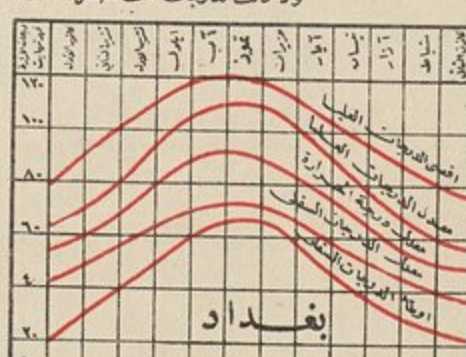 كانون الاول
تشرين الثاني
تشرين الاول
ايلول
آب
تموز
حزيران
آيار
نيسان
آزار
شباط
١٢٠
١٠٠
٨٠
٦٠
٤٠
٢٠
اقصى الدرجات العليا
معدل الدرجات العليا
معدل درجة الحرارة
معدل الدرجات السفلى
اوطأ الدرجات السفلى
بغداد